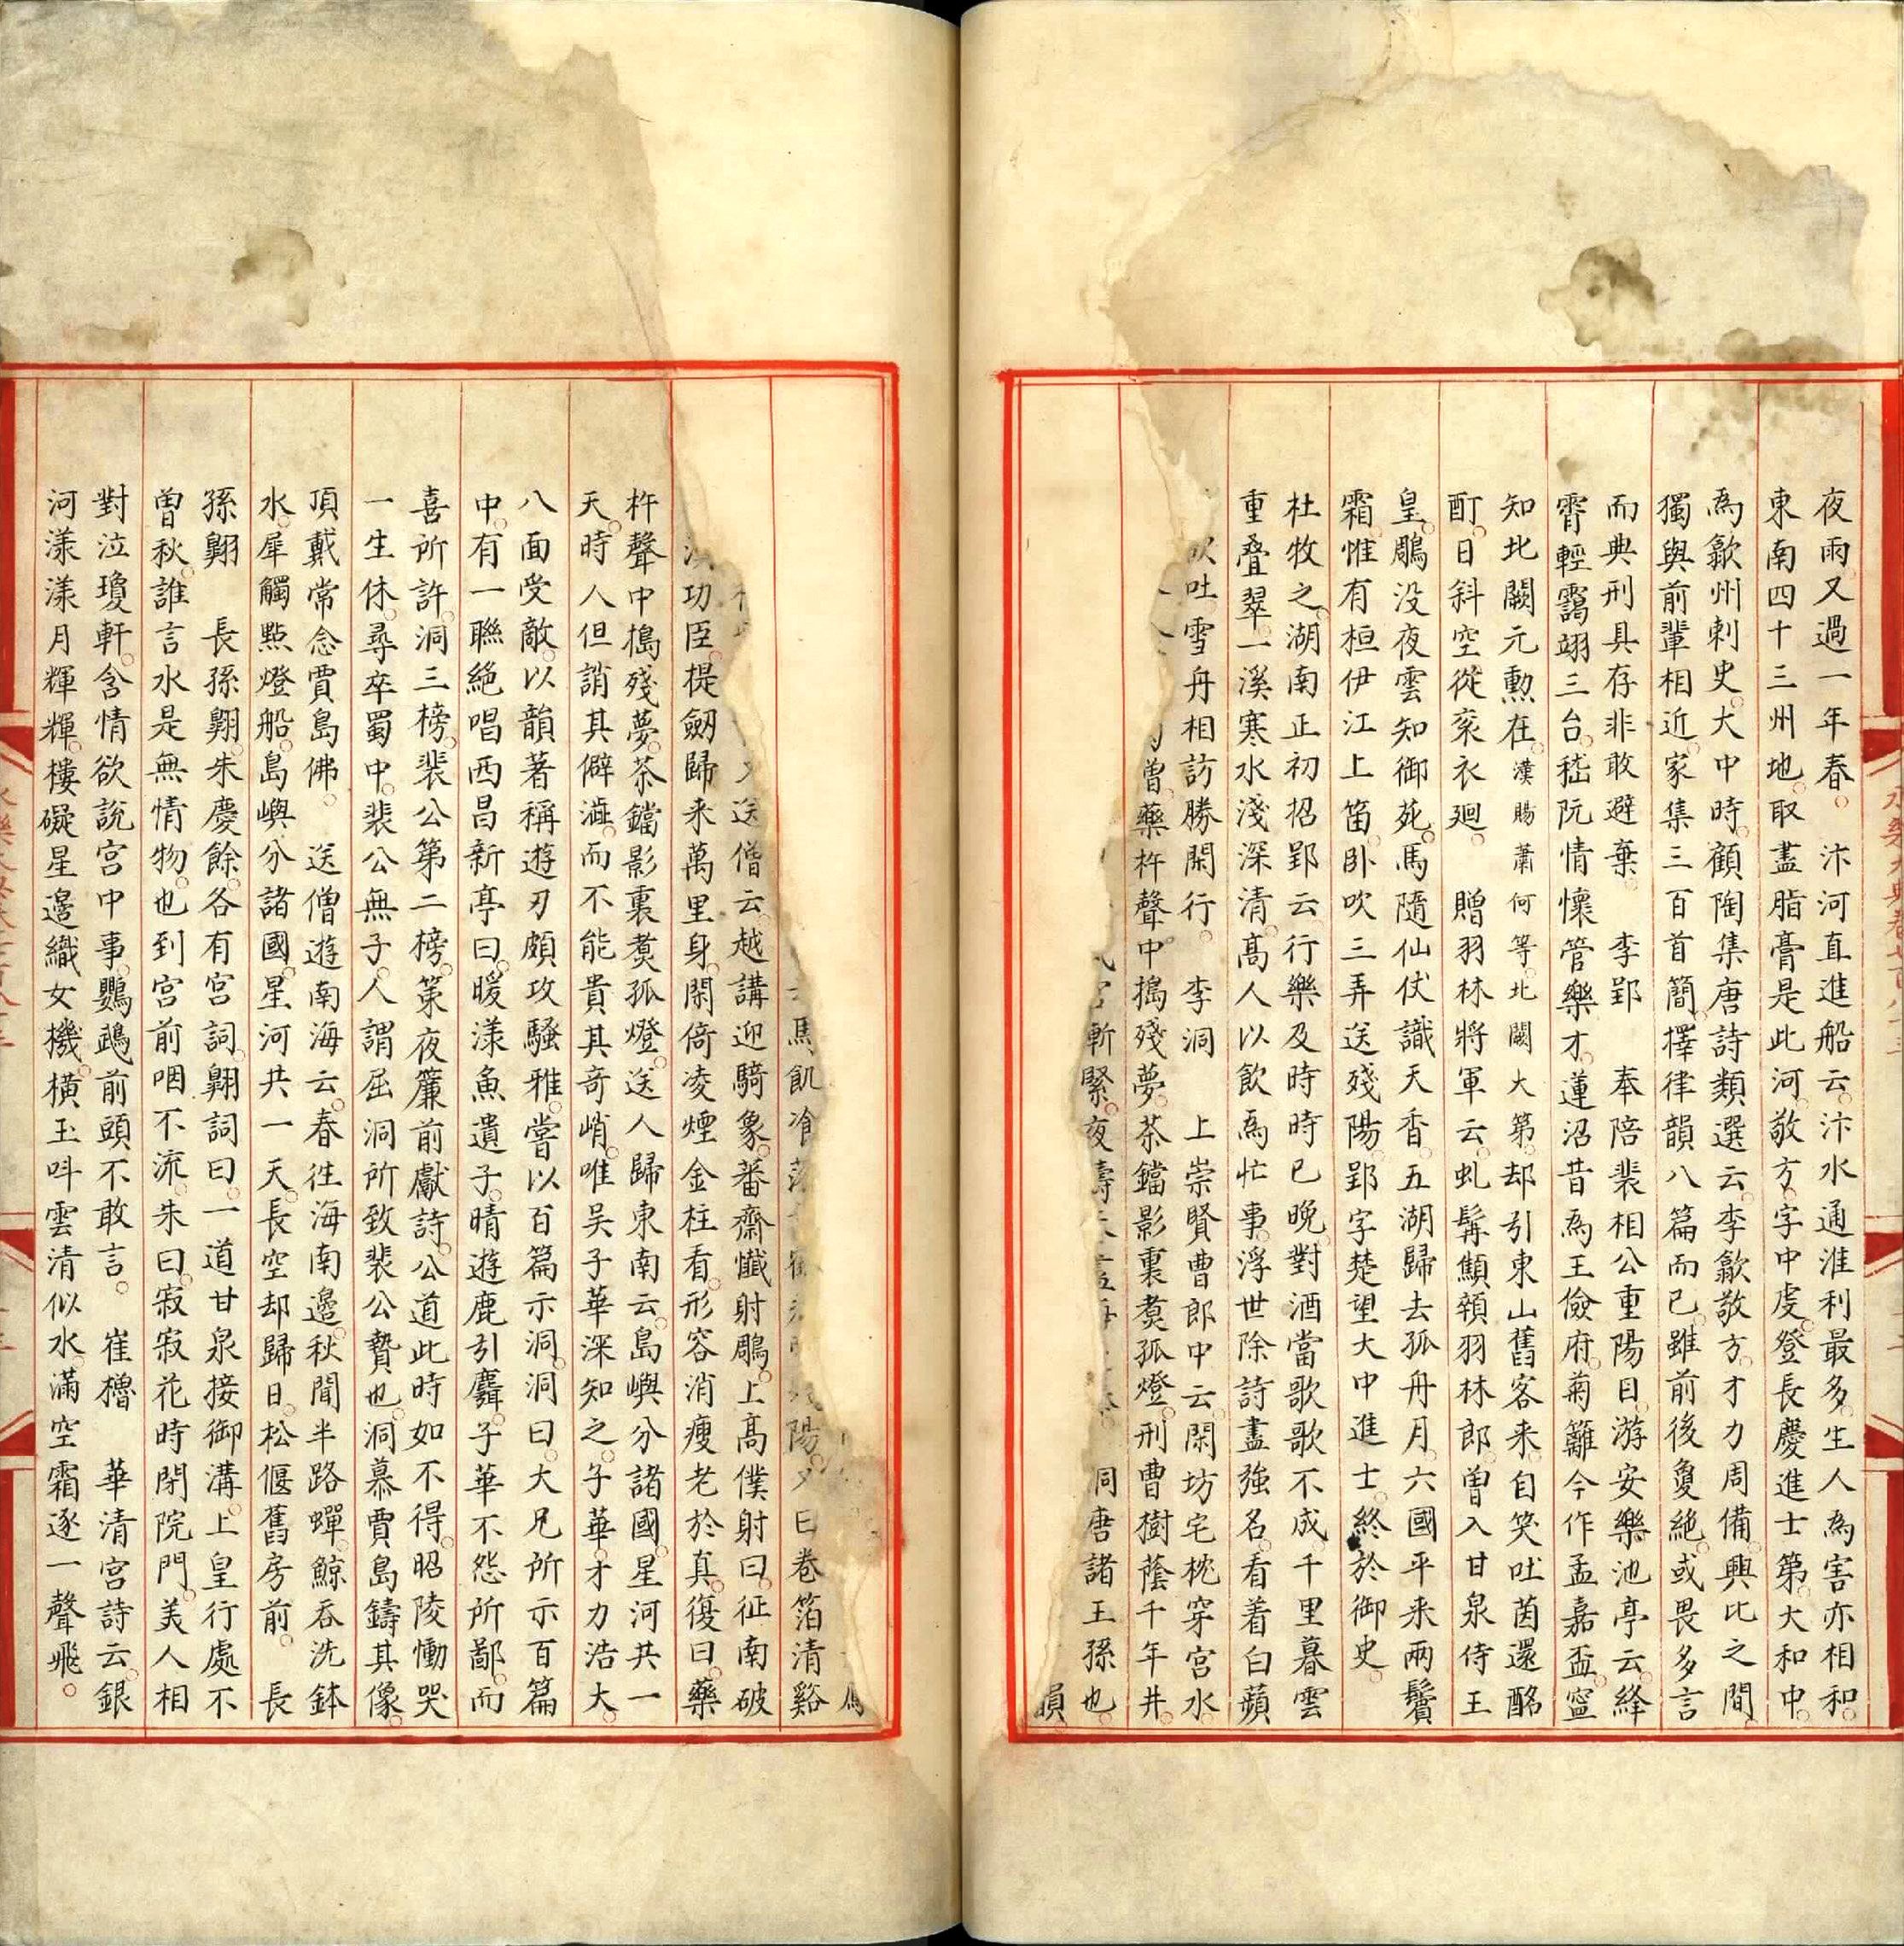 夜雨又過一年春 汴河直進船云汴水通淮利最多生人為害亦相和
東南四十三州地取盡脂膏是此河敬方字中虔登長慶進士第大和中
為歙州刺史大中時顧陶集唐詩類選云李歙敬方才力周備興比之間
獨與前輩相近家集三百首簡擇律韻八篇而已雖前後夐絶或畏多言
而典刑具存非敢避棄 李郢 奉陪裴相公重陽日游安樂池亭云絳
霄輕靄翊三台嵇阮情懷管樂才蓮沼昔為王儉府菊籬今作孟嘉盃寧
知北闕元勲在漢賜蕭何等北闕大第却引東山舊客来自笑吐茵還酩
酊日斜空從衮衣廻 贈羽林將軍云虬髯顦顇羽林郎曾入甘泉侍王
皇鵰没夜雲知御苑馬隨仙仗識天香五湖歸去孤舟月六國平来兩鬢
霜惟有桓伊江上笛卧吹三弄送殘陽郢字楚望大中進士終於御史
杜牧之湖南正初招郢云行樂及時時已晚對酒當歌歌不成千里暮雲
重叠翠一溪寒水淺深清髙人以飲為忙事浮世除詩盡強名看着白蘋
以吐雪舟相訪勝閑行 李洞 上崇賢曹郎中云閑坊宅枕穿宮水
曽藥杵聲中搗殘夢茶鐺影裏煑孤燈刑曹樹蔭千年井
斬緊夜 洞唐諸王孫也
韻
馬飢飡 陽又曰卷箔清谿
送僧云越講迎騎象蕃齋懺射鵰上髙僕射曰征南破
漢功臣提劒歸来萬里身閑倚凌煙金柱看形容消瘦老於真復曰藥
杵聲中搗殘夢茶鐺影裏煑孤燈送人歸東南云島嶼分諸國星河共一
天時人但誚其僻澁而不能貴其竒峭唯吳子華深知之子華才力浩大
八面受敵以韻著稱遊刃頗攻騷雅嘗以百篇示洞洞曰大兄所示百篇
中有一聯絶唱西昌新亭曰暖漾魚遺子晴遊鹿引麛子華不怨所鄙而
喜所許洞三榜裴公第二榜策夜簾前獻詩公道此時如不得昭陵慟哭
一生休尋卒蜀中裴公無子人謂屈洞所致裴公贄也洞慕賈島鑄其像
頂戴常念賈島佛 送僧遊南海云春徃海南邉秋聞半路蟬鯨吞洗鉢
水犀觸㸃燈船島嶼分諸國星河共一天長空却歸日松偃舊房前 長
孫翺 長孫翺朱慶餘各有宮詞翺詞曰一道甘泉接御溝上皇行處不
曽秋誰言水是無情物也到宮前咽不流朱曰寂寂花時閉院門美人相
對泣瓊軒含情欲說宮中事鸚鵡前頭不敢言 崔櫓 華清宮詩云銀
河漾漾月輝輝樓礙星邉織女機橫玉呌雲清似水滿空霜逐一聲飛